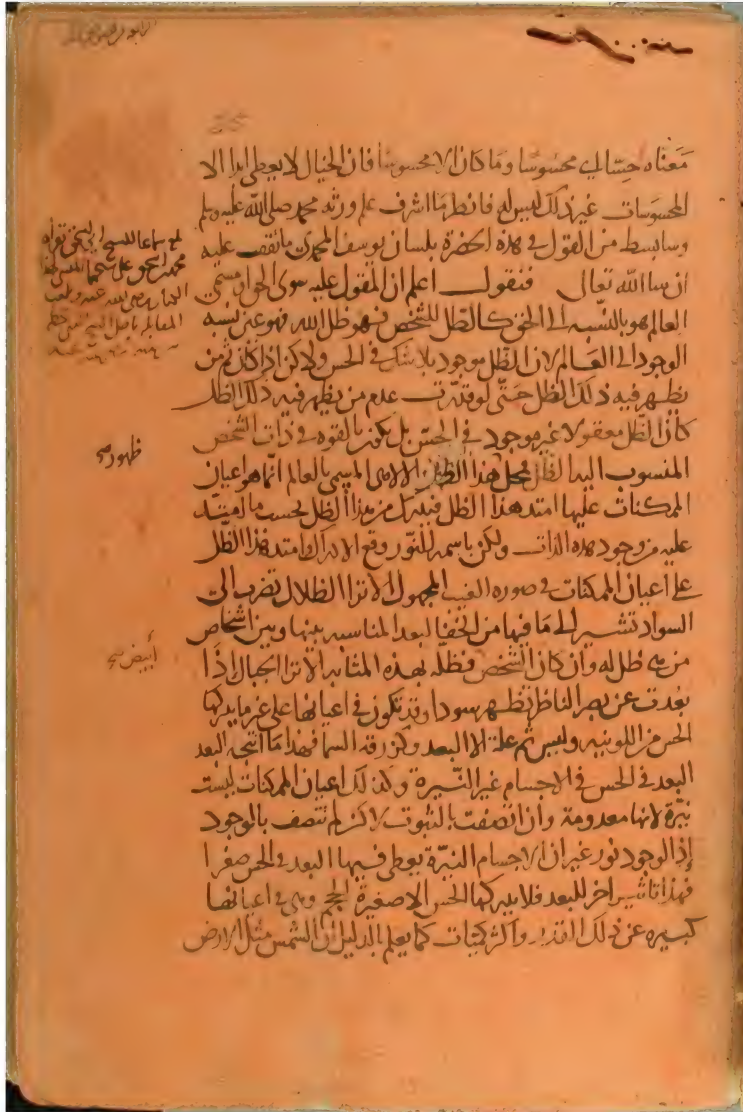 معناه حسا اي محسوسا وما كان الا محسوسا فان الخيال لا يعطي ابدا الا
المحسوسات غير ذلك ليس له فانظر ما اشرف علم ورثه محمد صلى الله عليه وسلم
وسابسط من القول في هذه الحضرة بلسان يوسف المحمدي ما تقف عليه
ان شا الله تعالى فنقول اعلم ان المقول عليه سوى الحق او مسمى
العالم هو بالنسبه الى الحق كالظل للشخص فهو ظل الله فهو عين نسبه
الوجود الى العالم لان الظل موجود بلا شك في الحس ولاكن اذا كان ثم من
يظهر فيه ذلك الظل حتى لو قدرت عدم من يظهر فيه ذلك الظل
كان الظل معقولا غير موجود في الحس بل يكون بالقوه في ذات الشخص
المنسوب اليه الظل فمحل هذا الظل الالاهي المسمى بالعالم انما هو اعيان
الممكنات عليها امتد هذا الظل فيدرك من هذا الظل بحسب ما امتد
عليه من وجود هذه الذات ولكن باسمه النور وقع الادراك وامتد هذا الظل
على اعيان الممكنات في صوره الغيب المجهول الا ترا الظلال تضرب الى
السواد تشير الى ما فيها من الخفا لبعد المناسبه بينها وبين اشخاص
من هي ظل له وان كان الشخص فظله بهذه المثابه الا ترا الجبال اذا
بعدت عن بصر الناظر تظهر سودا وقد تكون في اعيانها على غير ما يدركها
الحس من اللونيه وليس ثم علة الا البعد وكزرقه السما فهذا ما انتجه البعد
البعد في الحس في الاجسام غير النيرة وكذلك اعيان الممكنات ليست
نيرة لانها معدومة وان اتصفت بالثبوت لاكن لم تتصف بالوجود
إذ الوجود نور غير ان الاجسام النيرة يعطي فيها البعد في الحس صغرا
فهذا تاثير اخر للبعد فلا يدركها الحس الا صغيرة الحجم وهي في اعيانها
كبيره عن ذلك القدر واكثر كميات كما يعلم بالدليل ان الشمس مثل الارض
ظهور صح
أبيض صح